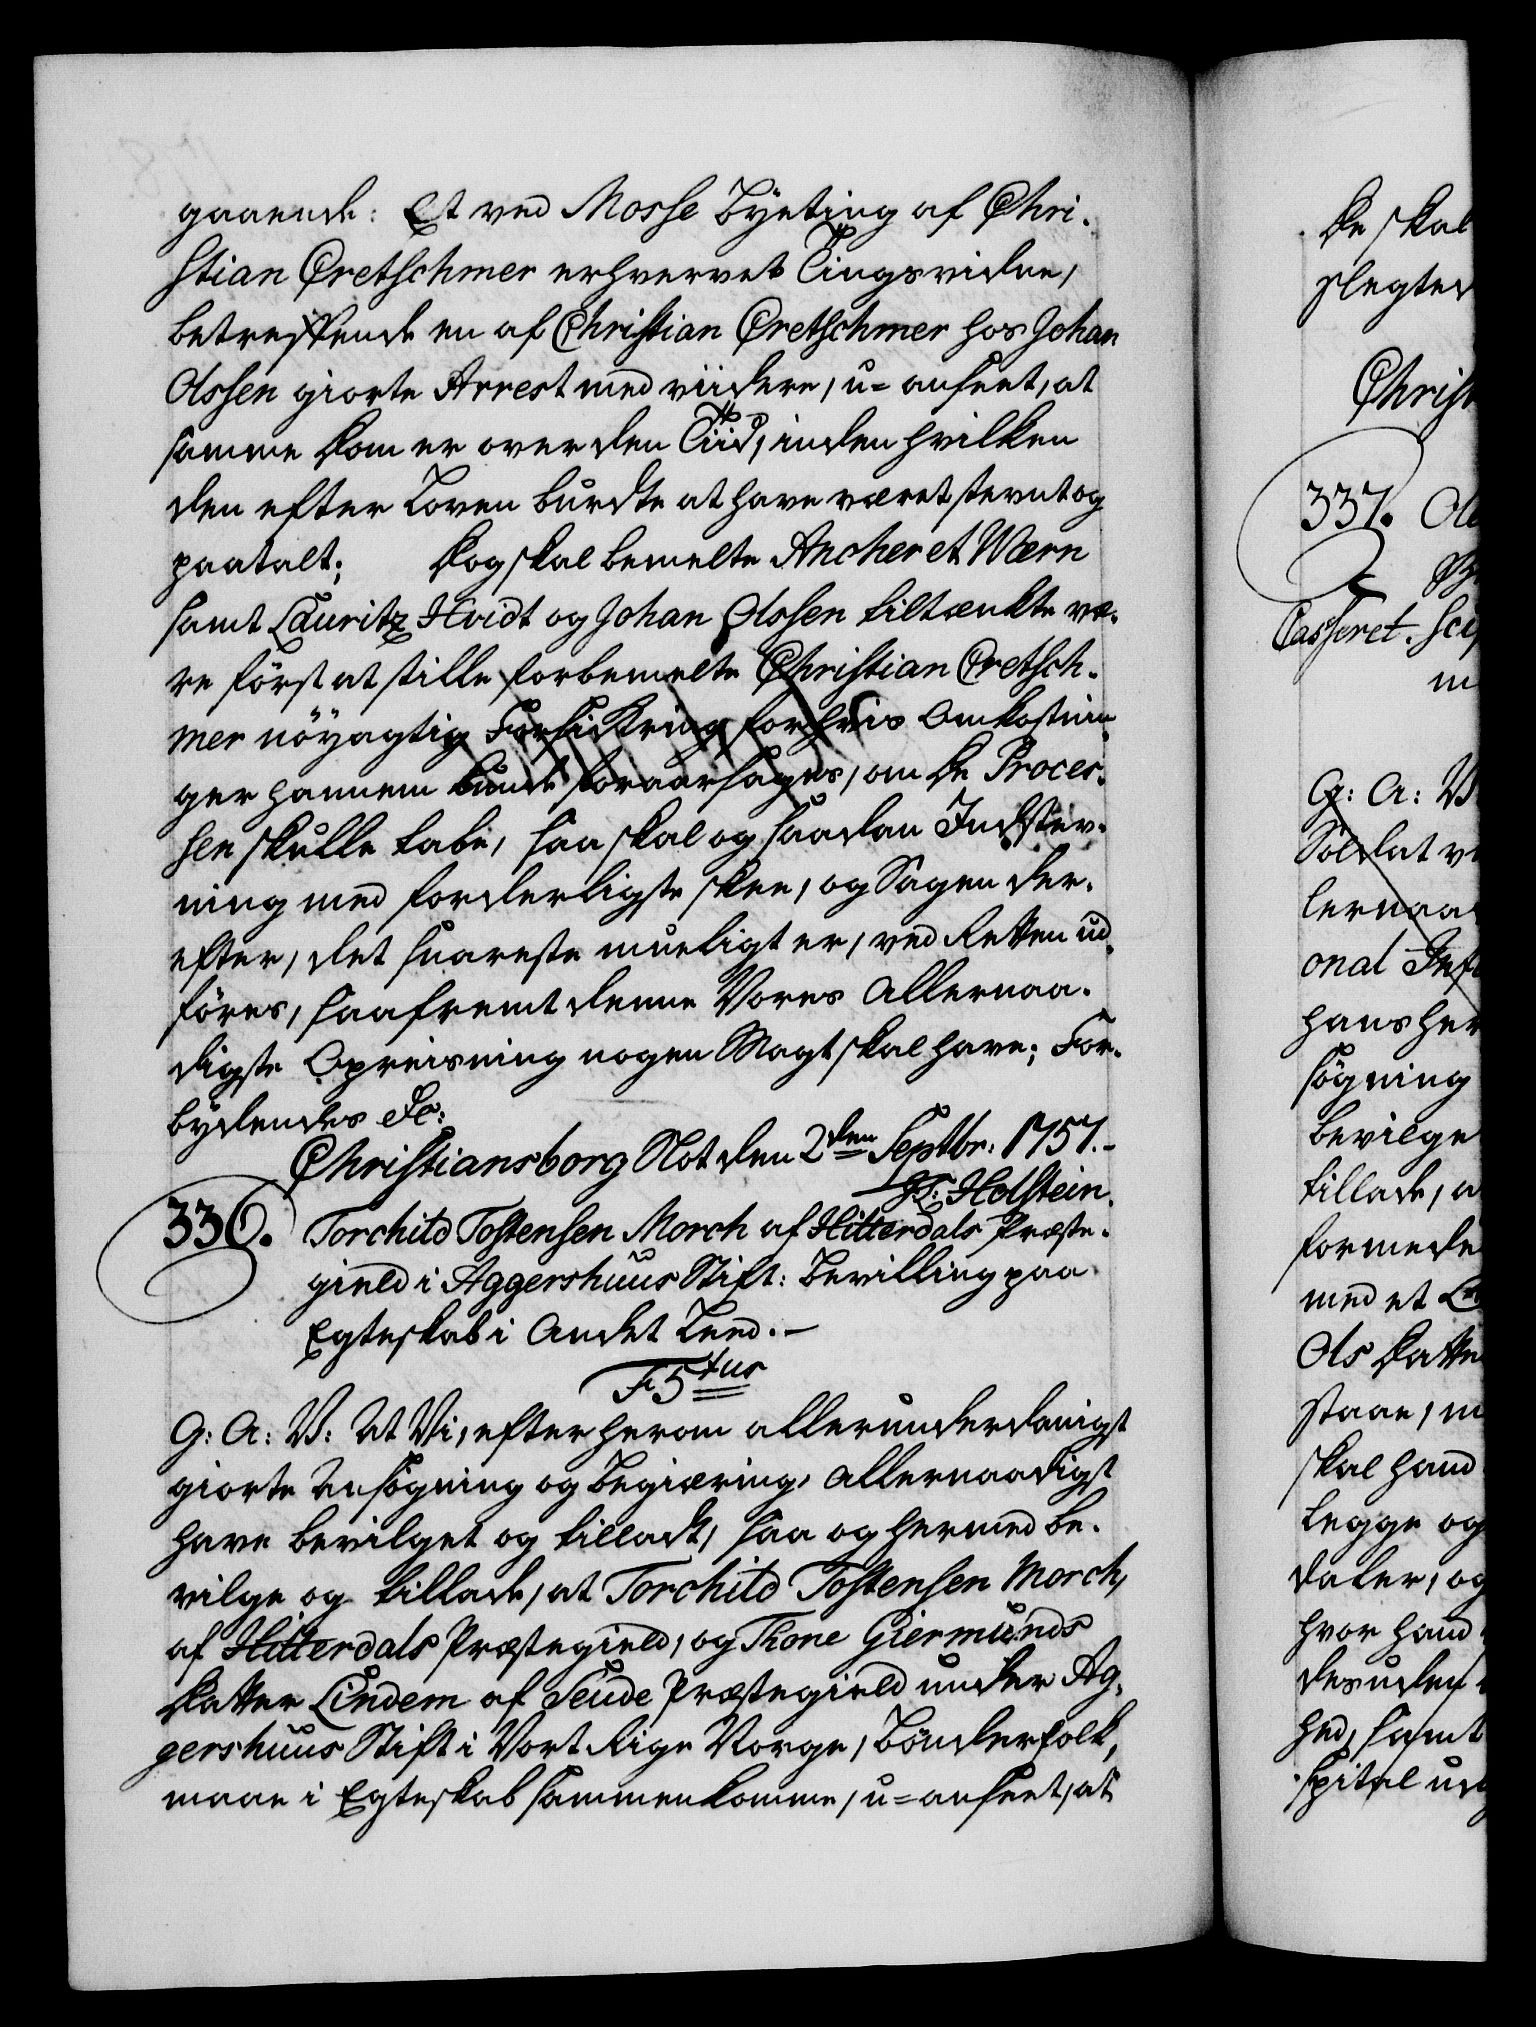 gaaende: Et ved Mosse Byeting af Chri-
stian Cretschmer erhvervet Tingsvidne,
betreffende en af Christian Cretschmer hos Johan
Olssen giorte Arrest med viidere, u-anseet, at
samme Dom er over den Tiid, inden hvilken
den efter Loven burdte at have været stevnt og
paatalt; Dog skal bemelte Ancher et Wærn
samt Lauritz Hvidt og Johan Olssen tiltænkte væ-
re först at stille forbemelte Christian Cretsch-
mer nöyagtig Forsickring for hvis Omkostnin-
ger hannem kunde foraarsages, om De Proces-
sen skulle tabe, saa skal og saadan Indstev-
ning med forderligste skee, og Sagen der-
efter, det snareste mueligt er, ved Retten ud-
föres, saafremt denne Vores Allernaa-
digste Opreisning nogen Magt skal have; For-
bydendes &c:
Christiansborg Slot den 2den Septbr: 1757.-
JL: Holstein.
336. Torchild Tostensen Morch af Hitterdals Præste-
gield i Aggershuus Stift: Bevilling paa
Egteskab i Andet Leed.-
F5tus
G: A: V: At Vi, efter herom allerunderdanigst
giorte Ansögning og Begiæring, Allernaadigst
have bevilget og tilladt, saa og hermed be-
vilge og tillade, at Torchild Tostensen Morch,
af Hitterdals Præstegield, og Thone Giermunds
Datter Lindem af Seude Præstegield under Ag-
gershuus Stift i Vort Rige Norge, Bönderfolk,
maae i Egteskab sammenkomme, u-anseet, at
De skal
slegted
Christ
337.
Casseret.
G: A: V
Soldat
onal
hans her
sögning
bevilge
tillade,
formede
med et
Ols Datte
staae,
skal hand
Legge og
daler, og
hvor hand
desuden
hed, samt
spital